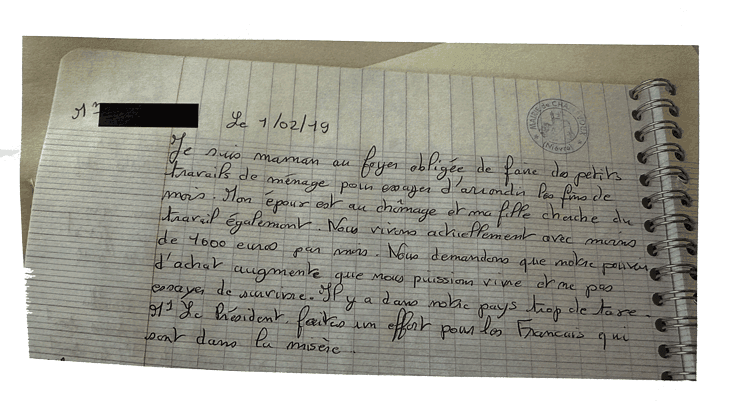 Mme
Le 1/02/19
MAIRIE de CHA
(Nièvre)
Je suis maman au foyer obligée de faire des petits
travails de ménage pour essayer d'arrondir les fins de
mois. Mon épour est au chômage et ma fille cherche du
travail également. Nous vivons actuellement avec moins
de 1000 euros par mois. Nous demandons que notre pouvoir
d'achat augmente que nous puission vivre et ne pas
essayer de survivre. Il y a dans notre pays trop de taxe.
Mr Le Président, faites un effort pour les Francais qui
sont dans la misère.